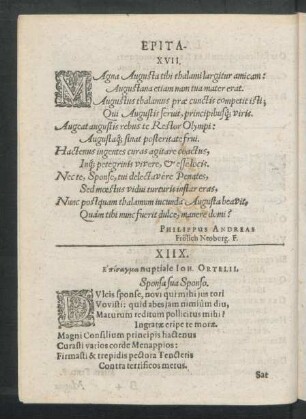 EPITA-
XVII.
MAgna Augusta tibi thalami largitur amicam:
Augustana etiam nam tua mater erat.
Augustus thalamus præ cunctis competit isti,
Qui Augustis servit, principibusq́; viris.
Augeat augustis rebus te Rector Olympi:
Augustaq́; sinat posteritate frui.
Hactenus ingentes curas agitare coactus,
Inq́; peregrinis vivere, & esse locis.
Nec te, Sponse, tui delectavêre Penates,
Sed mœstus vidui turturis instar eras,
Nunc postquam thalamum iucunda Augusta beavit,
Quàm tibi nunc fuerit dulce, manere domi?
PHILIPPUS ANDREAS
Frölich Neoberg. F.
XIIX.
nuptiale IOH. ORTELII.
Sponsa sua Sponso.
DUlcis sponse, novi qui mihi jus tori
Vovisti: quid abes jam nimiùm diu,
Maturum reditum pollicitus mihi?
Ingratæ eripe te moræ.
Magni Consilium principis hactenus
Curasti varios corde Menappios:
Firmasti & trepidis pectora Tencteris
Contra terrificos metus.
Sat